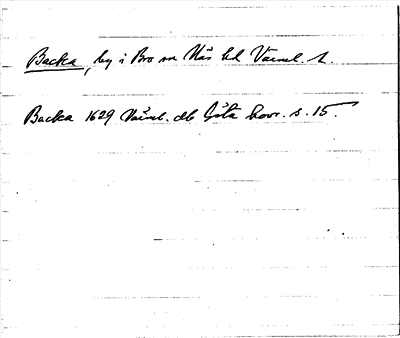 Backa, by i Bro sn Näs hd Värml. l.
Backa 1629 Värml. db Göta hovr. s. 15.